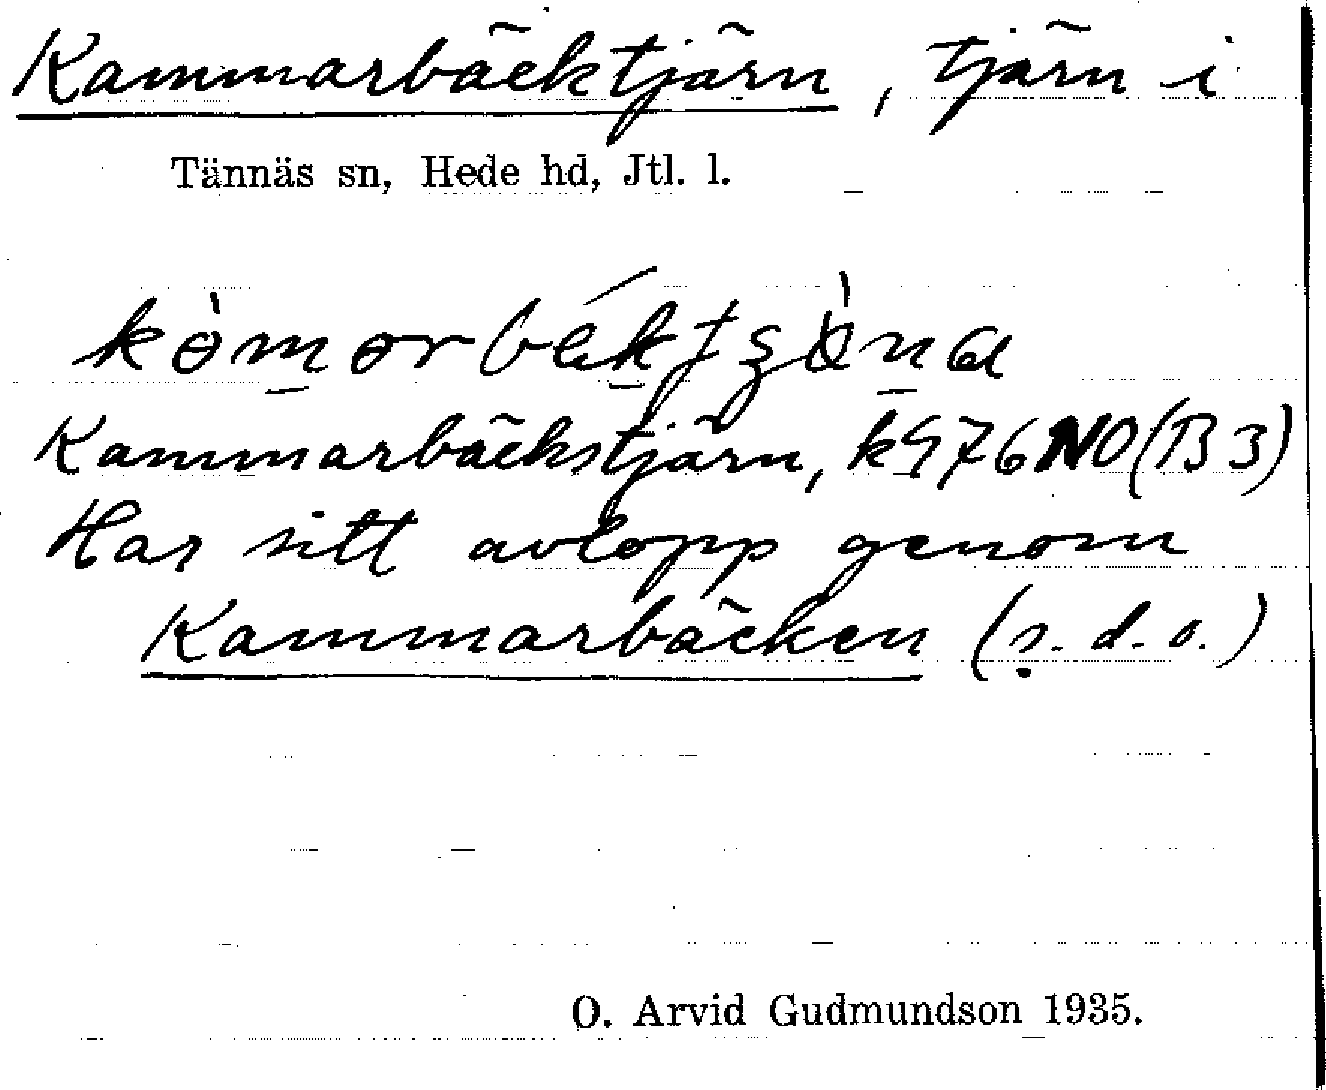 Kammarbäcktjärn, tjärn i
Tännäs sn, Hede hd, Jtl. l.
Kammarbäckstjärn, k976NO(B3)
Har sitt avlopp genom
Kammarbäcken (s.d.o.)
O. Arvid Gudmundson 1935.